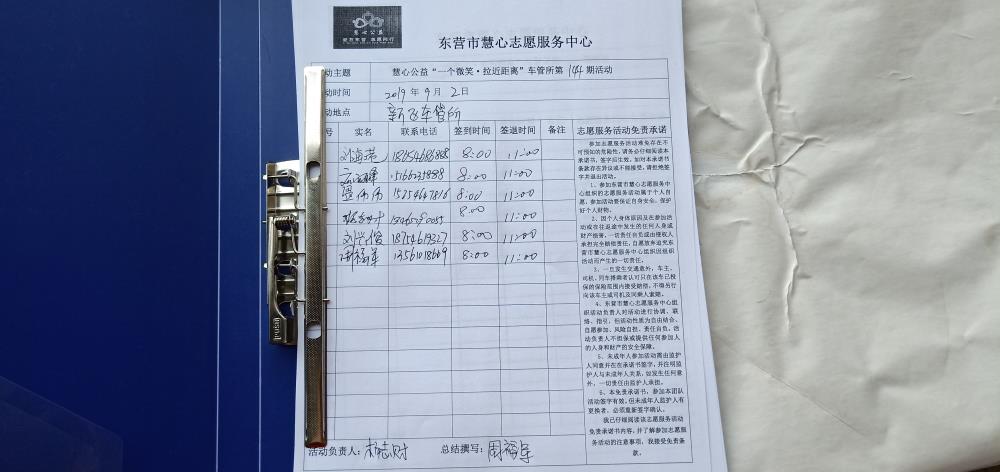 慧心公益
东营市慧心志愿服务中心
动主题 慧心公益“一个微笑·拉近距离”车管所第 144 期活动
动时间 2019 年 9 月 2 日
动地点 新飞车管所
号 实名 联系电话 签到时间 签退时间 备注 志愿服务活动免责承诺
8:00 11:00
8:00 11:00
8:00 11:00
8:00 11:00
8:00 11:00
8:00 11:00
参加志愿服务活动难免存在不
可预知的危险性，请务必仔细阅读本
承诺书，签字后生效。如对本承诺书
条款存在异议或不能接受，请拒绝签
字并退出活动。
1、参加东营市慧心志愿服务中
心组织的志愿服务活动属于个人自
愿，参加活动要保证自身安全，保护
好个人财物。
2、因个人身体原因及在参加活
动或在往返途中发生的任何人身或
财产损害，一切责任自负或由侵权人
承担完全赔偿责任，自愿放弃追究东
营市慧心志愿服务中心组织因组织
活动而产生的一切责任。
3、一旦发生交通意外，车主、
司机、同车搭乘者认可只在该车已投
保的保险范围内接受赔偿，不得另行
向该车主或司机及同乘人索赔。
4、东营市慧心志愿服务中心组
织活动负责人对活动进行协调、联
络、指引，但活动性质为自由结合、
自愿参加、风险自担、责任自负。活
动负责人不担保或提供任何参加人
的人身和财产的安全保障。
5、未成年人参加活动需由监护
人同意并在在承诺书签字，并注明监
护人与未成年人关系，如发生任何意
外，一切责任由监护人承担。
6、本免责承诺书，参加本团队
活动签字有效，但未成年人监护人有
更换者，必须重新签字确认。
我已仔细阅读该志愿服务活动
免责承诺书内容，并了解参加志愿服
务活动的注意事项，我接受免责条
款。
活动负责人： 总结撰写：